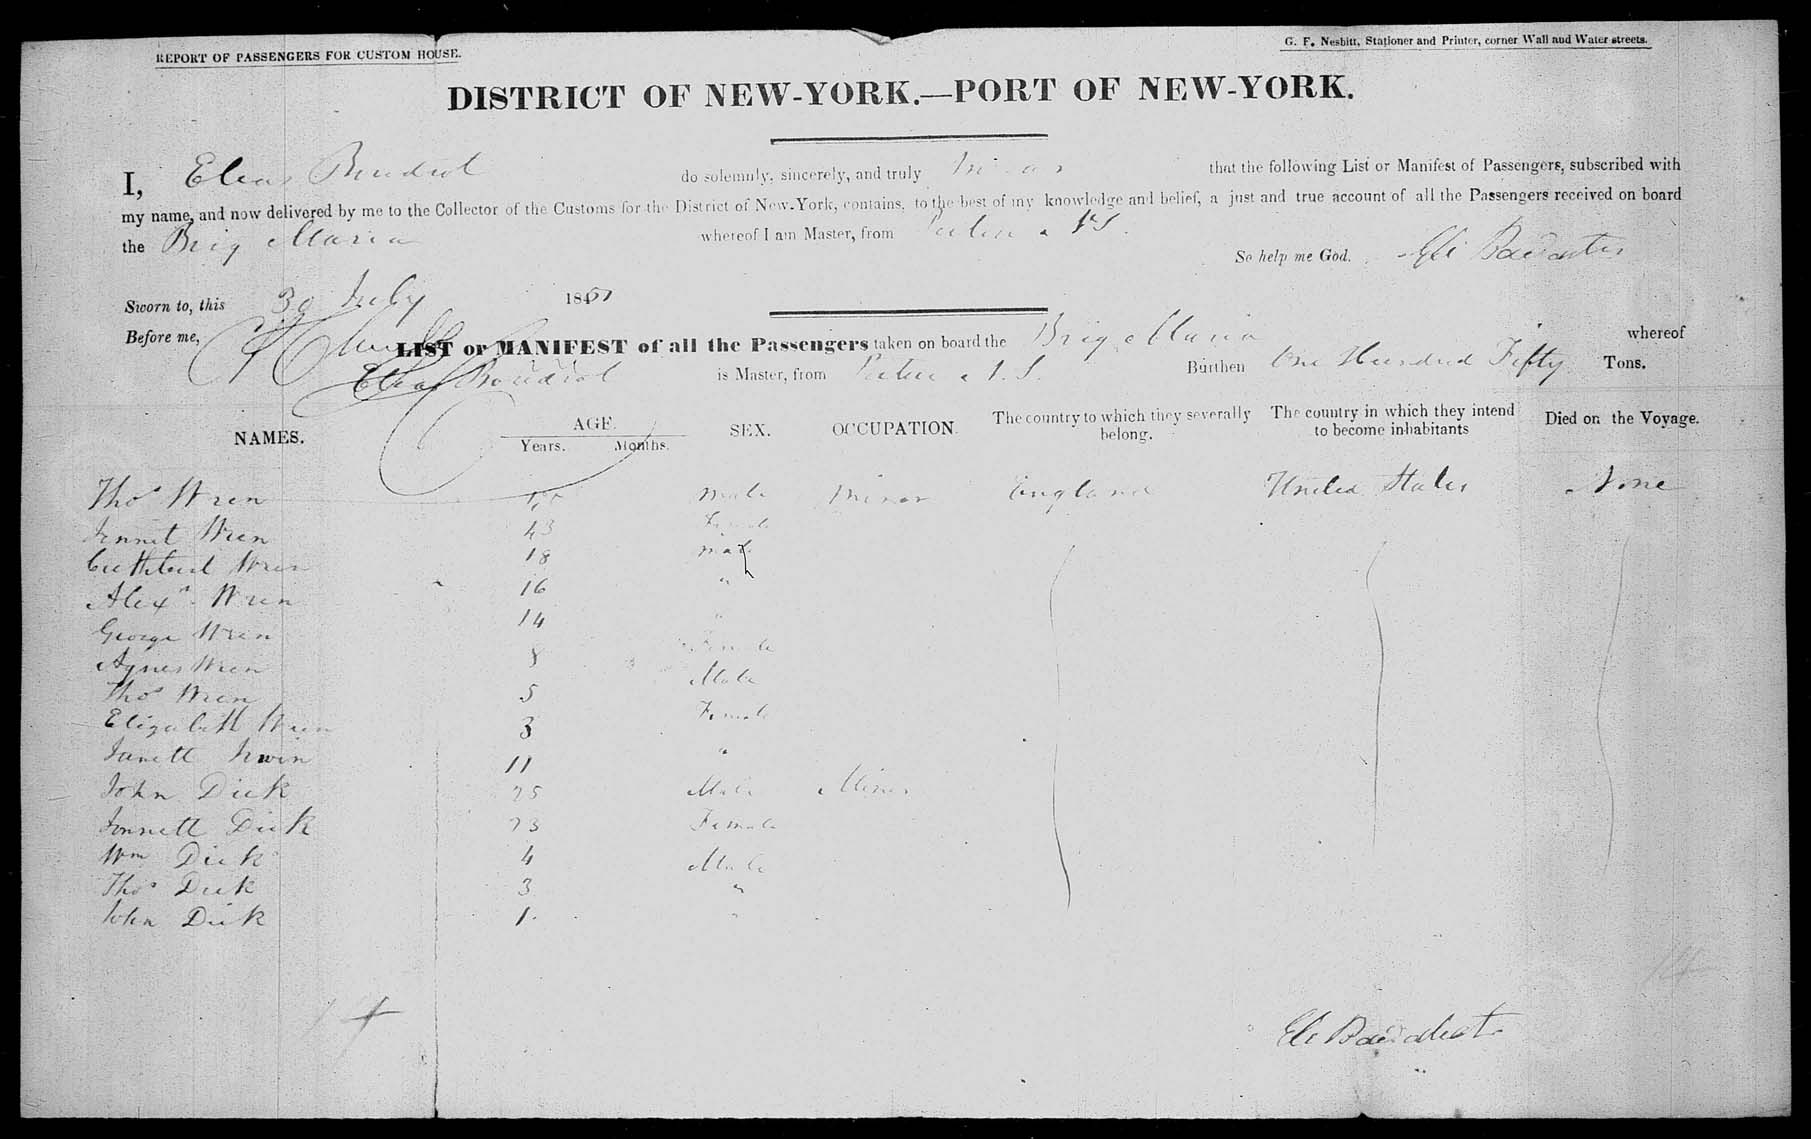 REPORT OF PASSENGERS FOR CUSTOM HOUSE.
G. F. Nesbitt, Stationer and Printer, corner Wall and Water streets.
DISTRICT OF NEW-YORK.—PORT OF NEW-YORK.
I, Elias Boudrot do solemnly, sincerely, and truly that the following List or Manifest of Passengers, subscribed with
my name, and now delivered by me to the Collector of the Customs for the District of New-York, contains, to the best of my knowledge and belief, a just and true account of all the Passengers received on board
the Brig Maria whereof I am Master, from N S.
So help me God.
Sworn to, this 30 July 1851
Before me,
LIST or MANIFEST of all the Passengers taken on board the Brig Maria whereof
Elias Boudrot is Master, from N. S. Burthen One Hundred Fifty Tons.
NAMES. AGE. Years. Months. SEX. OCCUPATION. The country to which they severally belong. The country in which they intend to become inhabitants Died on the Voyage.
Thos Wren male Miner England United States None
Jennet Wren 43 Female
Cuthbert Wren 18 male
Alexr. Wren 16 "
George Wren 14 "
Agnes Wren 8 Female
Thos Wren 5 Male
Elizabeth Wren 3 Female
Janett Irwin 11 "
John Dick 25 Male Miner
Jennett Dick 23 Female
Wm Dick 4 Male
Thos Dick 3 "
John Dick 1 "
14
14